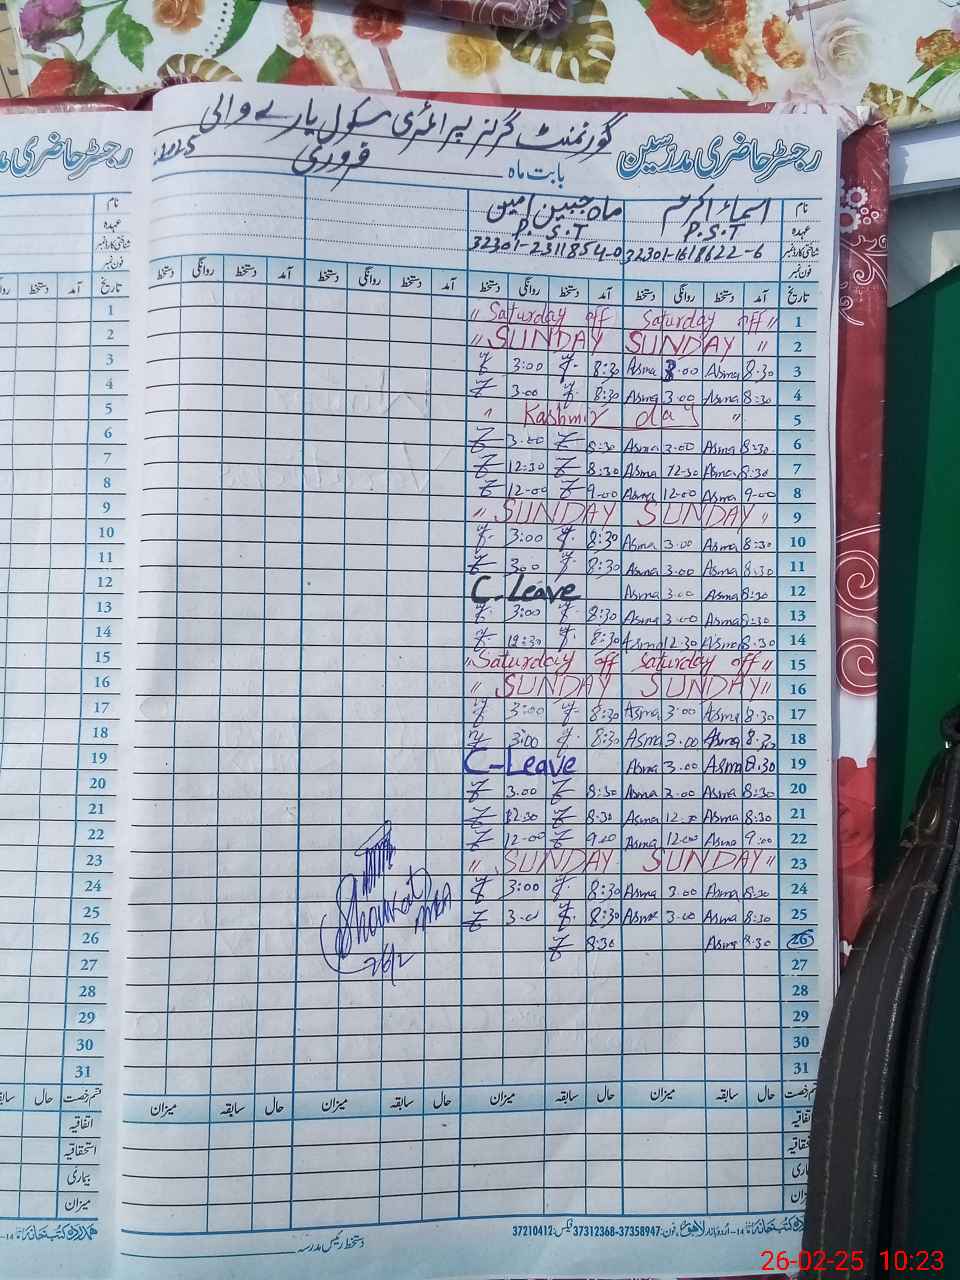 گورنمنٹ گرلز پرائمری سکول یارے والی
رجسٹر حاضری مدرسین بابت ماہ فروری 2025
رجسٹر حاضری مدر
نام اسماء اکرم ماہ جبین امین
عہدہ P.S.T P.S.T
شناختی کارڈ نمبر 32301-1618622-6 32301-2311854-0
فون نمبر
تاریخ آمد دستخط روانگی دستخط آمد دستخط روانگی دستخط آمد دستخط روانگی دستخط آمد دستخط روانگی دستخط
" Saturday off Saturday off" 1
" SUNDAY SUNDAY " 2
3:00 8:30 Asma 3.00 Asma 8.30 3
3.00 8:30 Asma 3.00 Asma 8:30 4
" Kashmir day " 5
3.00 8:30 Asma 3.00 Asma 8:30 6
12:30 8:30 Asma 12.30 Asma 8:30 7
12-00 9-00 Asma 12-00 Asma 9-00 8
" SUNDAY SUNDAY " 9
3:00 8:30 Asma 3.00 Asma 8:30 10
3.00 8:30 Asma 3.00 Asma 8:30 11
C-Leave Asma 3.00 Asma 8:30 12
3:00 8:30 Asma 3.00 Asma 8:30 13
12:30 8:30 Asma 12.30 Asma 8.30 14
" Saturday off Saturday off " 15
" SUNDAY SUNDAY " 16
3:00 8:30 Asma 3.00 Asma 8.30 17
3:00 8:30 Asma 3.00 Asma 8.30 18
C-Leave Asma 3.00 Asma 8.30 19
3.00 8:30 Asma 3.00 Asma 8:30 20
12.30 8.30 Asma 12.30 Asma 8:30 21
12-00 9.00 Asma 12.00 Asma 9:00 22
" SUNDAY SUNDAY " 23
3:00 8:30 Asma 3.00 Asma 8:30 24
3.00 8:30 Asma 3.00 Asma 8:30 25
8:30 Asma 8.30 26
Shoukat
26/2
27
28
29
30
31
قسم رخصت حال سابقہ میزان حال سابقہ میزان حال سابقہ میزان حال سابقہ میزان
اتفاقیہ
استحقاقیہ
بیماری
میزان
دستخط رئیس مدرسہ
فون:37358947-37312368 فیکس:37210412
26-02-25 10:23